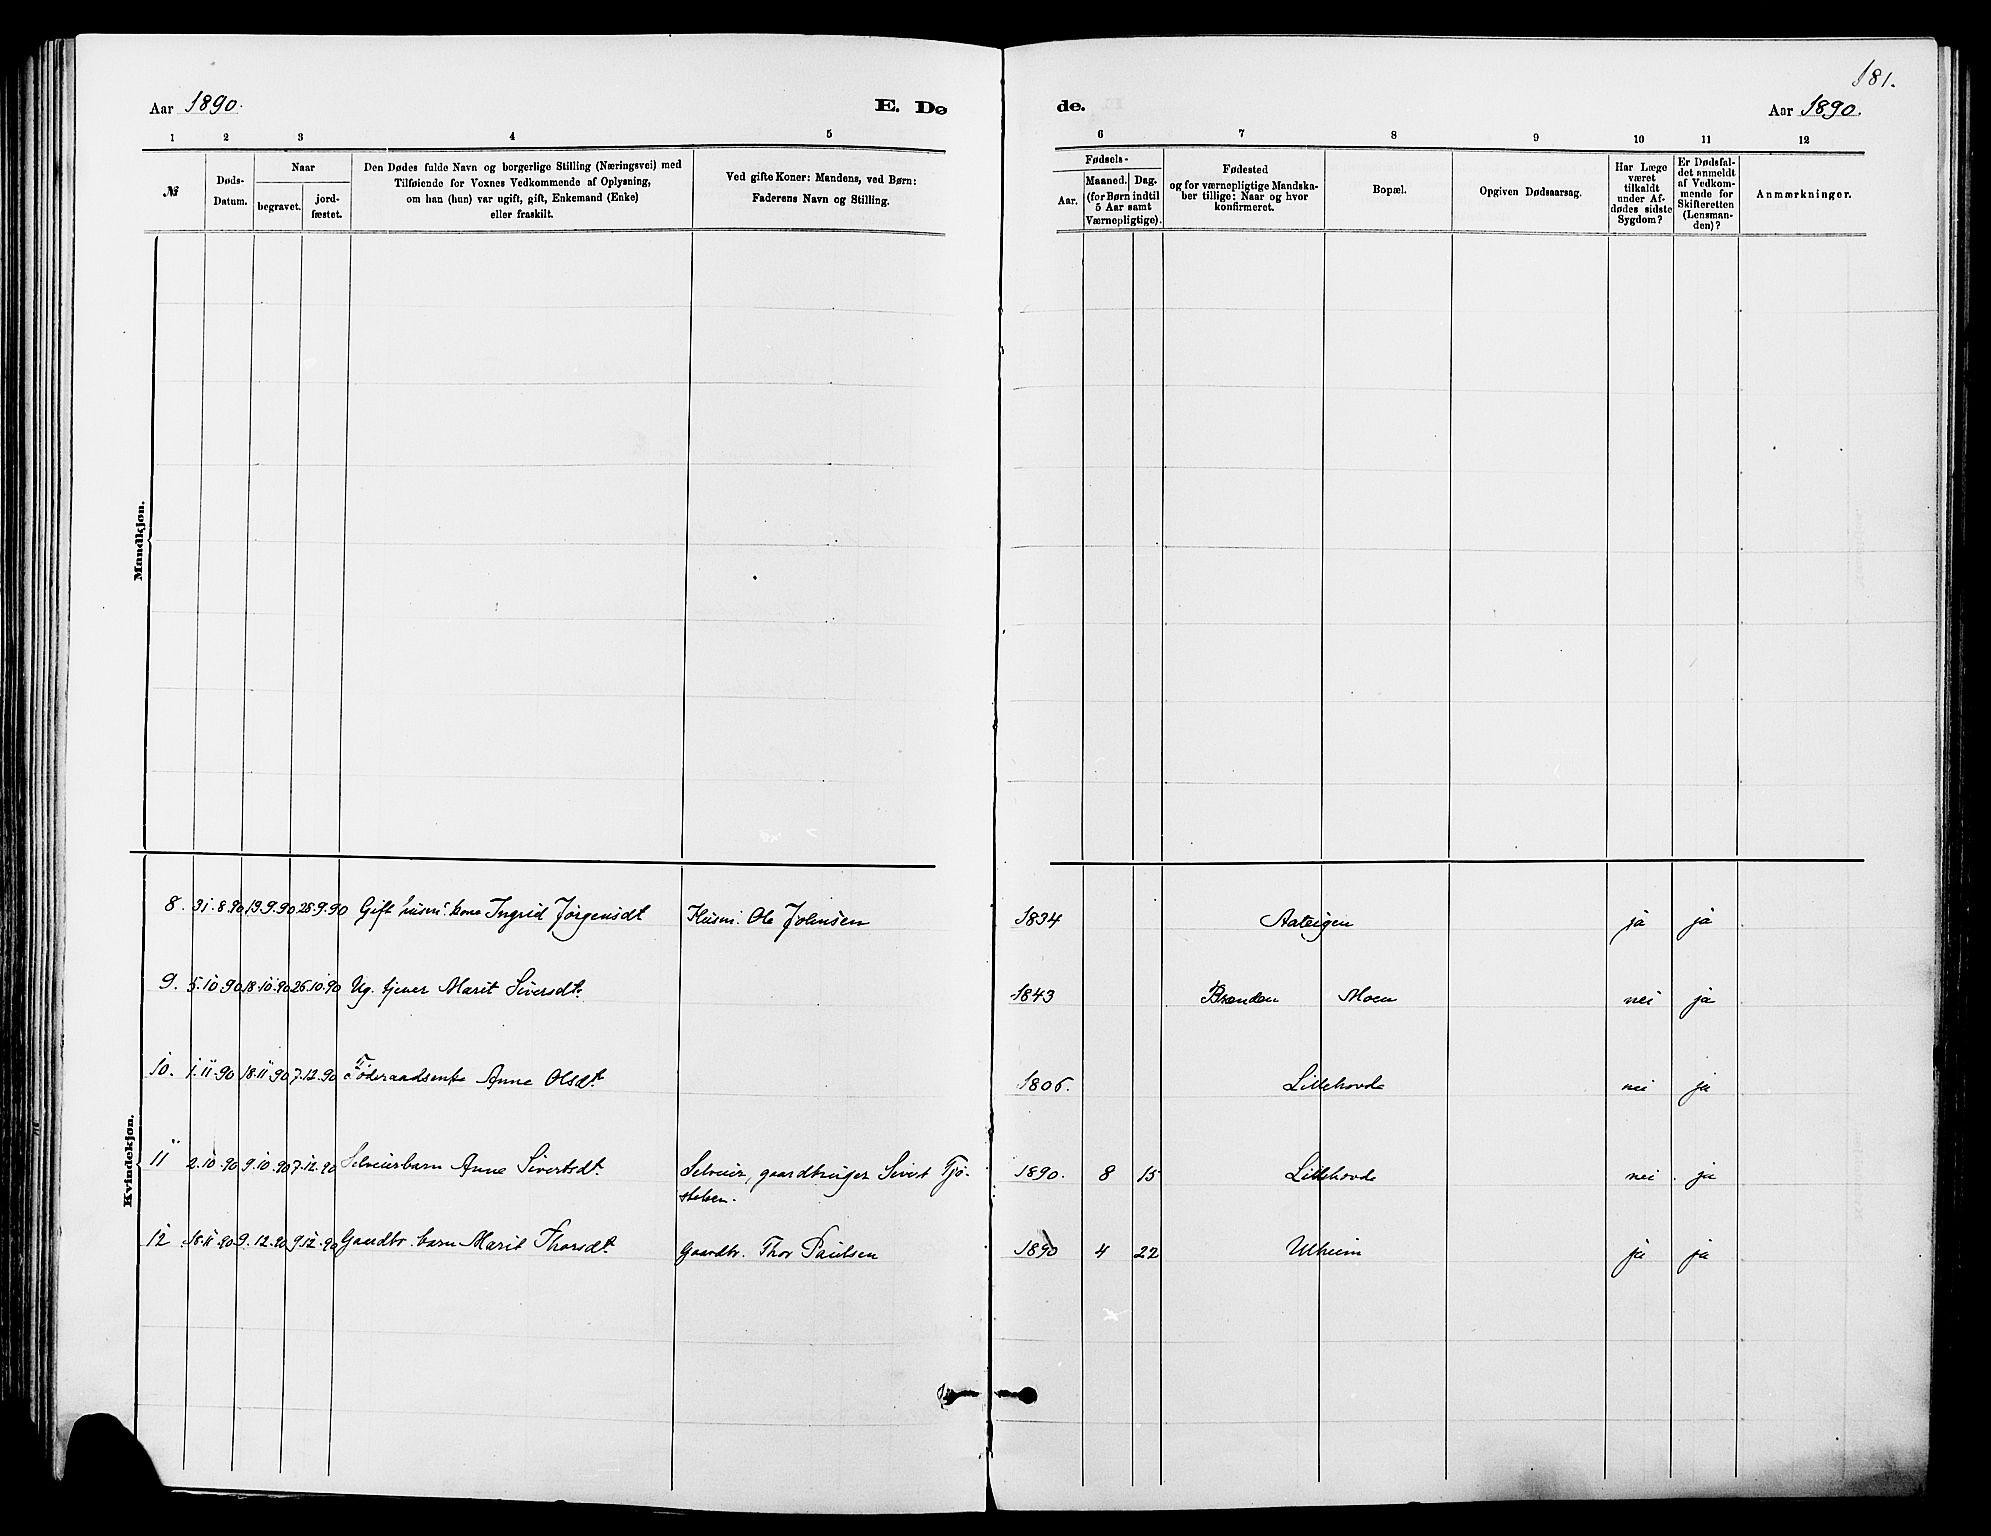 181.
Aar 1890. E. Dø de. Aar 1890.
1 2 3 4 5 6 7 8 9 10 11 12
№
Døds-
Datum.
Naar
begravet.
jord-
fæstet.
Den Dødes fulde Navn og borgerlige Stilling (Næringsvei) med
Tilføiende for Voxnes Vedkommende af Oplysning,
om han (hun) var ugift, gift, Enkemand (Enke)
eller fraskilt.
Ved gifte Koner: Mandens, ved Børn:
Faderens Navn og Stilling.
Fødsels-
Aar.
Maaned. Dag.
(for Børn indtil
5 Aar samt
Værnepligtige).
Fødested
og for værnepligtige Mandska-
ber tillige: Naar og hvor
konfirmeret.
Bopæl.
Opgiven Dødsaarsag.
Har Læge
været
tilkaldt
under Af-
dødes sidste
Sygdom?
Er Dødsfal-
det anmeldt
af Vedkom-
mende for
Skifteretten
(Lensman-
den)?
Anmærkninger.
Mandkjøn.
Kvindekjøn.
8. 31.8.90 19.9.90 28.9.90 Gift husm. kone Ingrid Jørgensdt Husm. Ole Johnsen 1834 Aateigen ja ja
9. 5.10.90 18.10.90 26.10.90 Ug. tjener Marit Siversdt. 1843 Brænden Moen nei ja
10. 1.11.90 18.11.90 7.12.90 Føderaadsenke Anne Olsdt 1806. Lillehovde nei ja
11 2.10.90 9.10.90 7.12.90 Selveierbarn Anne Sivertsdt. Selveier, gaardbruger Sivert Tjø- 1890. 8 15 Lillehovde nei ja
stelsen.
12 18.11.90 9.12.90 9.12.90 Gaardbr. barn Marit Thorsdt. Gaardbr. Thor Paulsen 1890 4 22 Ulheim ja ja